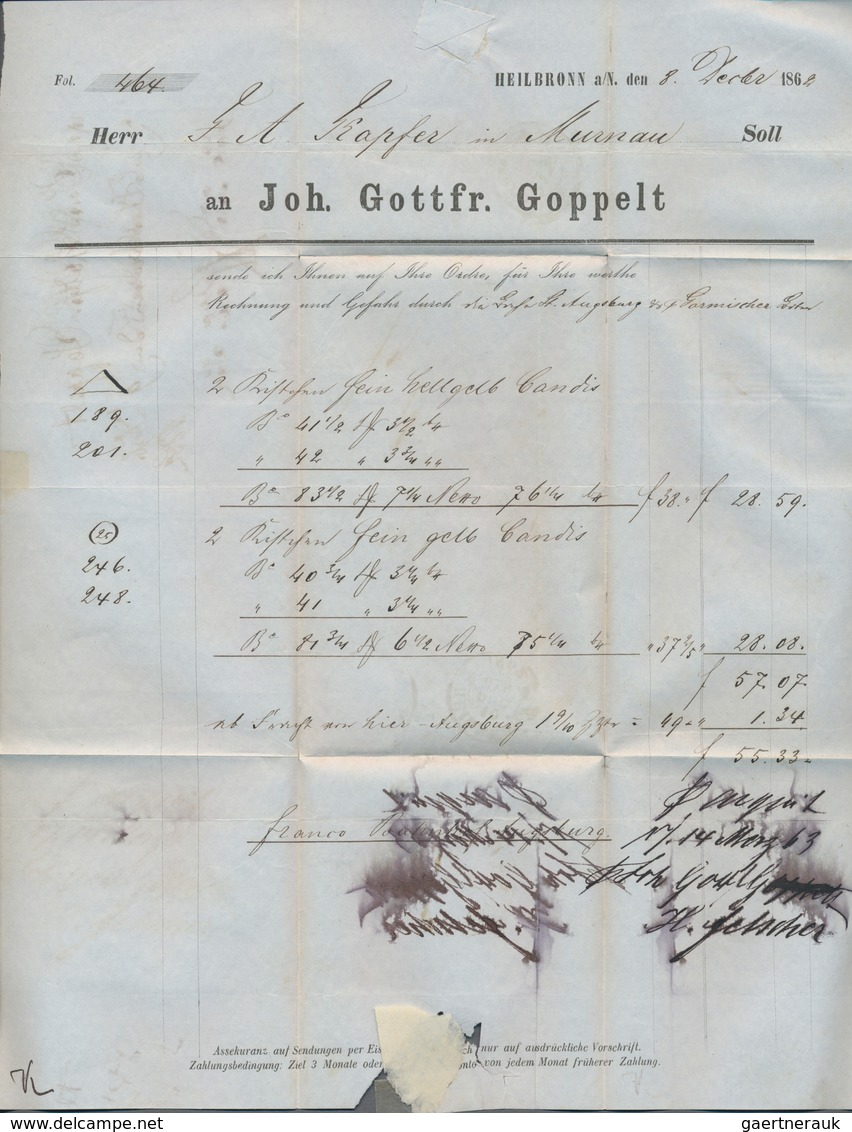 Fol. 464. HEILBRONN a/N. den 8. Decbr 1862
Herr J. A. Kapfer in Murnau Soll
an Joh. Gottfr. Goppelt
sende ich Ihnen auf Ihre Ordre, für Ihre werthe
Rechnung und Gefahr durch die Augsburg Garmischer Boten
2 Kistchen fein hellgelb Candis
189. Bo 41 1/2 ℔ 3 1/2
201. " 42 " 3 3/4 "
Bo 83 1/2 ℔ 7 1/4 Netto 76 1/4 f 38." f 28. 59.
25 2 Kistchen fein gelb Candis
246. Bo 40 3/4 ℔ 3 1/4
248. " 41 " 3 1/4 "
Bo 81 3/4 ℔ 6 1/2 Netto 75 1/4 " 37 2/5 " 28. 08.
f 57. 07.
ab Fracht von hier - Augsburg 1 9/10 = 49 " 1. 34
f 55. 33
franco Augsburg.
14 März 63
Joh Gottf Goppelt
Assekuranz auf Sendungen per Eis ch nur auf ausdrückliche Vorschrift.
Zahlungsbedingung: Ziel 3 Monate oder onto von jedem Monat früherer Zahlung.
www.delcampe.net gaertnerauk